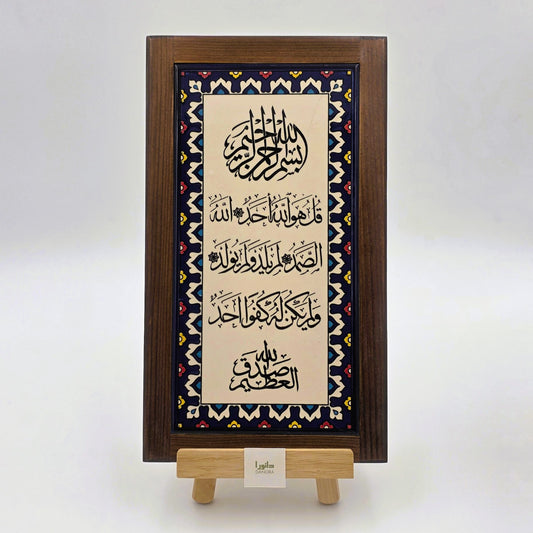 بسم الله الرحمن الرحيم
قُلْ هُوَ اللَّهُ أَحَدٌ ۞ اللَّهُ
الصَّمَدُ ۞ لَمْ يَلِدْ وَلَمْ يُولَدْ ۞
وَلَمْ يَكُنْ لَهُ كُفُوًا أَحَدٌ
صدق الله العظيم
دانورا
DANORA